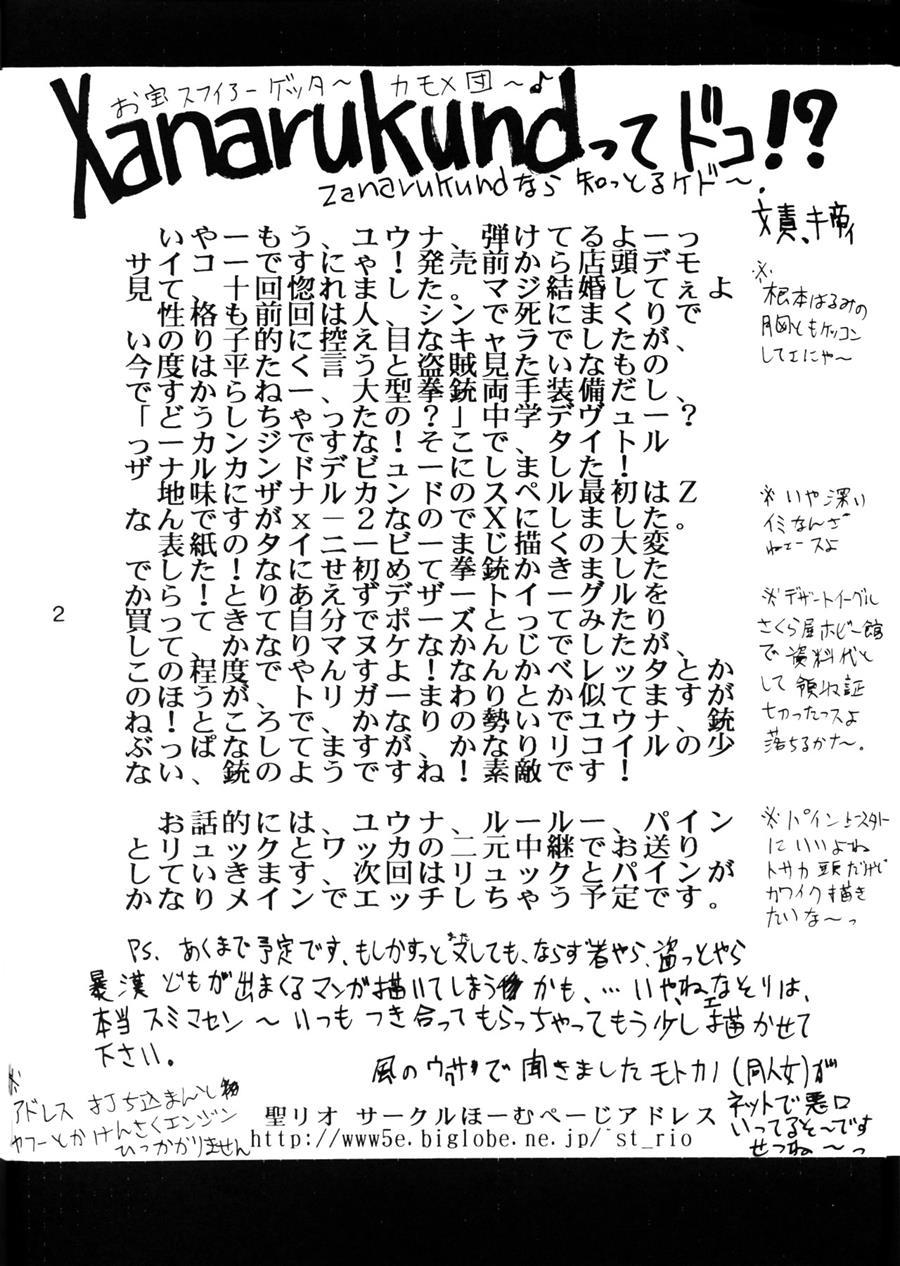 お宝スフィアーゲッタ〜 カモメ団〜♪
Xanarukundってドコ!?
zanarukundなら知っとるケド〜.
いやーもう、ユウナ、弾けてるよーっ
サイコーですにゃ!発売前から店頭デモ
見て、十回惚れました。マジ結婚してぇよ
性格も前回は人、シンで死にまくりで
いのり子的に控え目なキャラでしたが、
今度は平たく言うと盗賊見たいなもの
ですからねー、大型拳銃両手装備だし、
「どうしちゃったの?」中学デヴュー?
っーカンジですな!そこで、タイトル
ザナルカンドデビューにしました!
地味にザナルカンドのスペル最初はZ
なんですがx−2なのでXにしました。
表紙のタイニービーまじ描くの大変
でした!なにせ初めて拳銃かきました
から!とりあえずデザートイーグルを
買って、かなり自分でポーズとってみたり
して、かなりマヌケなかんじでしたが、
この程度でやんすよ!なんかべレッタとか
のほうが、トリガーまわりとか似てますが
ね!ところでかなりの勢いでユウナ、銃
ぶっぱなしてますが、かなりリコイルの少
ない、銃のようですね!素敵です!
お話的には、ユウナ、ルールー、パイン
とリュックとワッカの二元中継でお送り
しています、次回はリュックとパインが
かなりメインでエッチしちゃう予定です。
文責、キ帝ィ
※根本はるみの
胸ともケッコン
してェにゃ〜
※いや深い
イミなんざ
ねェースよ
※デザートイーグル
さくら屋ホビー館
で資料代と
して領収証
切ったっスよ
落ちるかな〜。
※パイン
にいいよね
トサカ頭だけど
カワイク描き
たいな〜っ
2
PS. あくまで予定です、もしかすっとまた、ならず者やら、盗っとやら
暴漢どもが出まくるマンが描いてしまうかも、…いやねェなそりは、
本当スミマセン〜いつもつき合ってもらっちゃってもう少し描かせて
下さい。
風のウワサで聞きましたモトカノ(同人女)が
ネットで悪口
いってるそ〜です
せつね〜っ
※
アドレス打ち込まんと
ヤフーとかけんさくエンジン
ひっかかりません
聖リオ サークルほーむぺーじアドレス
http://www5e.biglobe.ne.jp/~st_rio